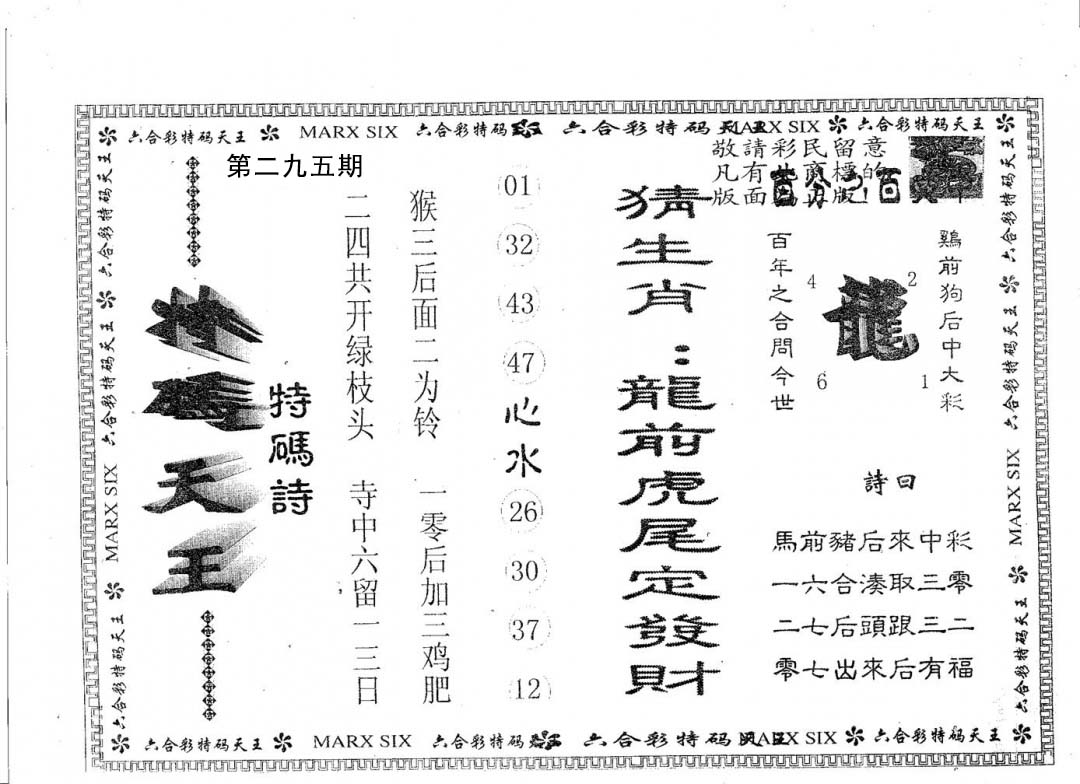 六合彩特码天王 MARX SIX 六合彩特码 六合彩特码 MARX SIX 六合彩特码天王
敬請彩民留意
凡有
的
版面
版!
第二九五期
特碼天王
特碼詩
二四共开绿枝头 寺中六留一三日
猴三后面二为铃 一零后加三鸡肥
01
32
43
47
心水
26
30
37
12
猜生肖：龍前虎尾定發財
百年之合問今世
4
2
龍
6
1
鷄前狗后中大彩
詩曰
馬前豬后來中彩
一六合湊取三零
二七后頭跟三二
零七出來后有福
六合彩特码天王 MARX SIX 六合彩特码天王 六合彩特码天王
六合彩特码天王 六合彩特码天王 MARX SIX 六合彩特码天王
六合彩特码天王 MARX SIX 六合彩特码 六合彩特码 MARX SIX 六合彩特码天王